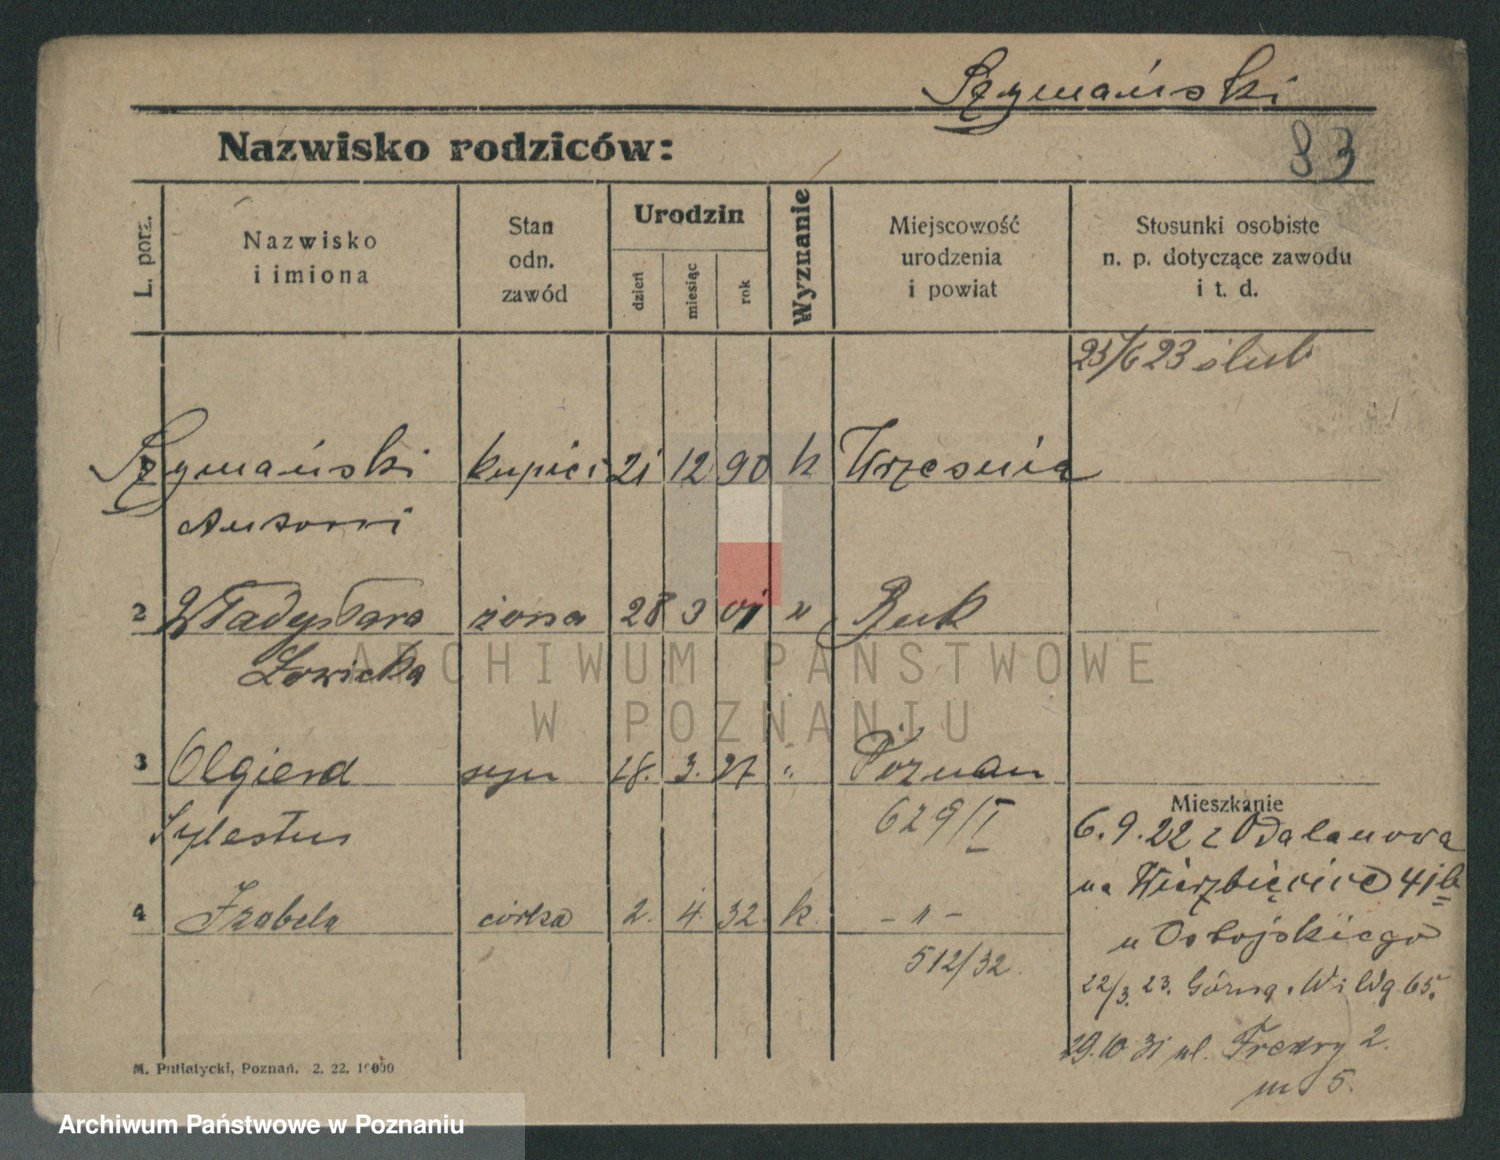 Szymański
Nazwisko rodziców:
83
L. porz.
Nazwisko
i imiona
Stan
odn.
zawód
Urodzin
dzień
miesiąc
rok
Wyznanie
Miejscowość
urodzenia
i powiat
Stosunki osobiste
n. p. dotyczące zawodu
i t. d.
25/6 23 ślub
Szymański kupiec 21 12 90 k Września
Antoni
2 Władysława żona 28 3 01 " Buk
Łowicka
3 Olgierd syn 18. 3. 27 " Poznań
Sylwester 629/I
4 Izabela córka 2. 4. 32 k – " –
512/32
Mieszkanie
6.9.22 z Odalanowa
na Wierzbięcice 41b
u Ostojskiego
22/3. 23. Górna Wilda 65.
29.10 31 ul. Fredry 2.
m 5.
M. Putiatycki, Poznań. 2. 22. 10000
ARCHIWUM PAŃSTWOWE
W POZNANIU
Archiwum Państwowe w Poznaniu